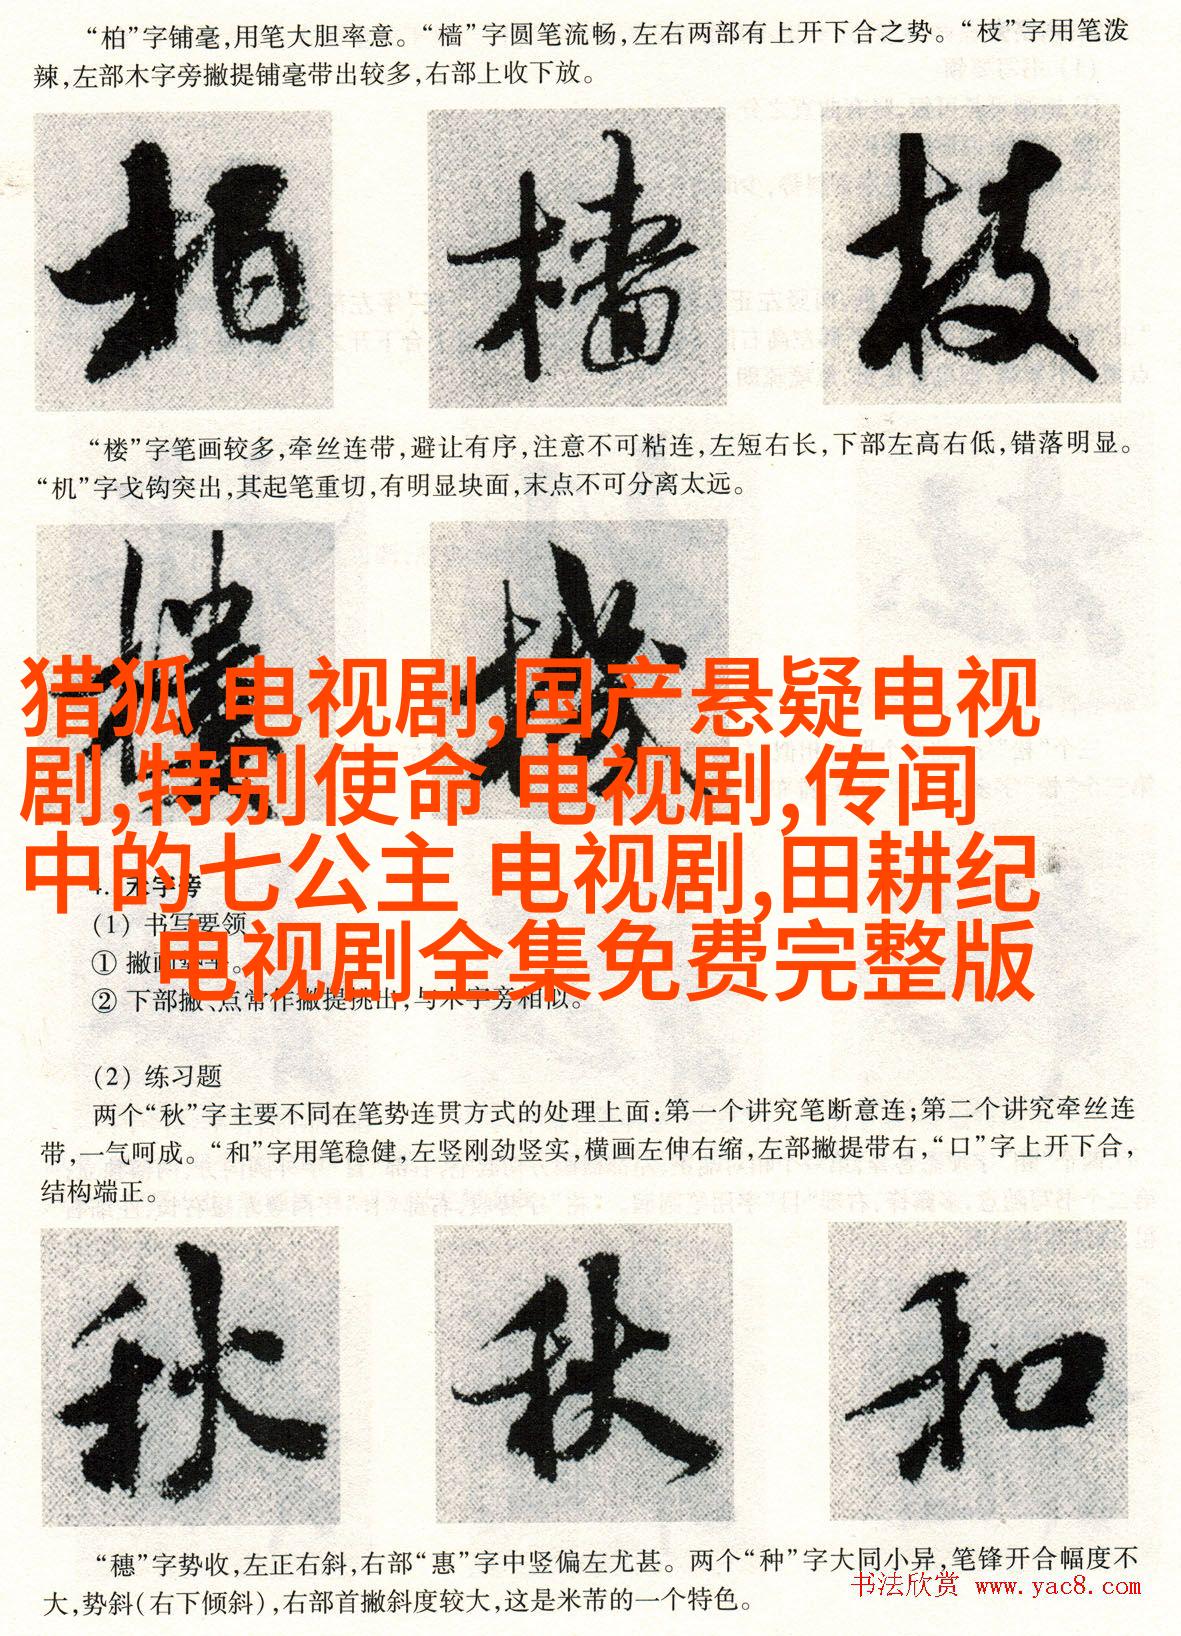 “柏”字铺毫,用笔大胆率意。“樯”字圆笔流畅,左右两部有上开下合之势。“枝”字用笔泼
辣,左部木字旁撇提铺毫带出较多,右部上收下放。
柏 樯 枝
“楼”字笔画较多,牵丝连带,避让有序,注意不可粘连,左短右长,下部左高右低,错落明显。
“机”字戈钩突出,其起笔重切,有明显块面,末点不可分离太远。
樓 機
猎狐 电视剧,国产悬疑电视
剧,特别使命 电视剧,传闻
中的七公主 电视剧,田耕纪
电视剧全集免费完整版
4. 禾字旁
(1) 书写要领
① 撇画
② 下部撇、点常作撇提挑出,与木字旁相似。
(2) 练习题
两个“秋”字主要不同在笔势连贯方式的处理上面:第一个讲究笔断意连;第二个讲究牵丝连
带,一气呵成。“和”字用笔稳健,左竖刚劲竖实,横画左伸右缩,左部撇提带右,“口”字上开下合,
结构端正。
秋 秋 和
“穗”字势收,左正右斜,右部“惠”字中竖偏左尤甚。两个“种”字大同小异,笔锋开合幅度不
大,势斜(右下倾斜),右部首撇斜度较大,这是米芾的一个特色。
书法欣赏 www.yac8.com